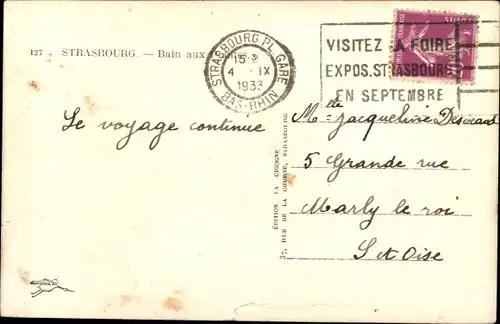 127 - STRASBOURG. - Bain aux
STRASBOURG PL. GARE
4 IX
1933
BAS-RHIN
VISITEZ LA FOIRE
EXPOS. STRASBOURG
EN SEPTEMBRE
Le voyage continue
Mlle Jacqueline
5 Grande rue
Marly le roi
S et Oise
ÉDITION LA CIGOGNE
37, RUE DE LA COURSE, STRASBOURG